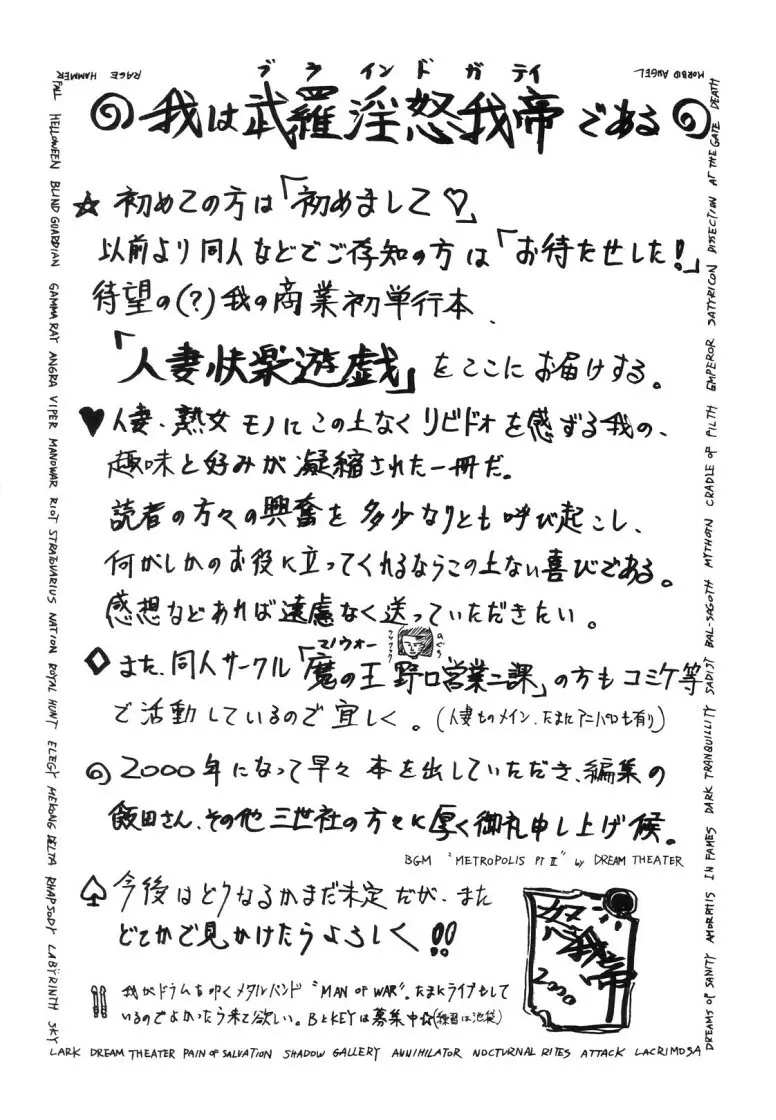 MORBID ANGEL
RAGE HAMMER
FALL HELLOWEEN BLIND GUARDIAN GAMMA RAY ANGRA VIPER MANOWAR RIOT STRATOVARIUS NATION ROYAL HUNT ELEGY MEKONG DELTA RHAPSODY LABŸRINTH SKY
ブラインドガディ
我は武羅淫怒我帝である
☆初めての方は「初めまして♡」
以前より同人などでご存知の方は「お待たせした!」
待望の(?)我の商業初単行本、
「人妻快楽遊戯」をここにお届けする。
♥人妻・熟女モノにこの上なくリビドォを感ずる我の、
趣味と好みが凝縮された一冊だ。
読者の方々の興奮を多少なりとも呼び起こし、
何がしかのお役に立ってくれるならこの上ない喜びである。
感想などあれば遠慮なく送っていただきたい。
マノウォー
のぐち
◇また、同人サークル「魔の王 野口営業二課」の方もコミケ等
で活動しているので宜しく。(人妻ものメイン、たまにアニパロも有り)
2000年になって早々本を出していただき、編集の
飯田さん、その他三世社の方々に厚く御礼申し上げ候。
BGM "METROPOLIS PT II" by DREAM THEATER
♤今後はどうなるかまだ未定だが、また
どこかで見かけたらよろしく!!
我がドラムを叩くメタルバンド"MAN OF WAR"。たまにライブもして
いるのでよかったら来て欲しい。BとKEYは募集中☆(練習は池袋)
我帝
2000
DREAMS OF SANITY AMORPHIS IN FAMES DARK TRANQUILLITY SADIST BAL-SAGOTH MYTHOTN CRADLE OF FILTH EMPEROR SATYRICON DISSECTION AT THE GATE DEATH
LARK DREAM THEATER PAIN OF SALVATION SHADOW GALLERY ANNIHILATOR NOCTURNAL RITES ATTACK LACRIMOSA